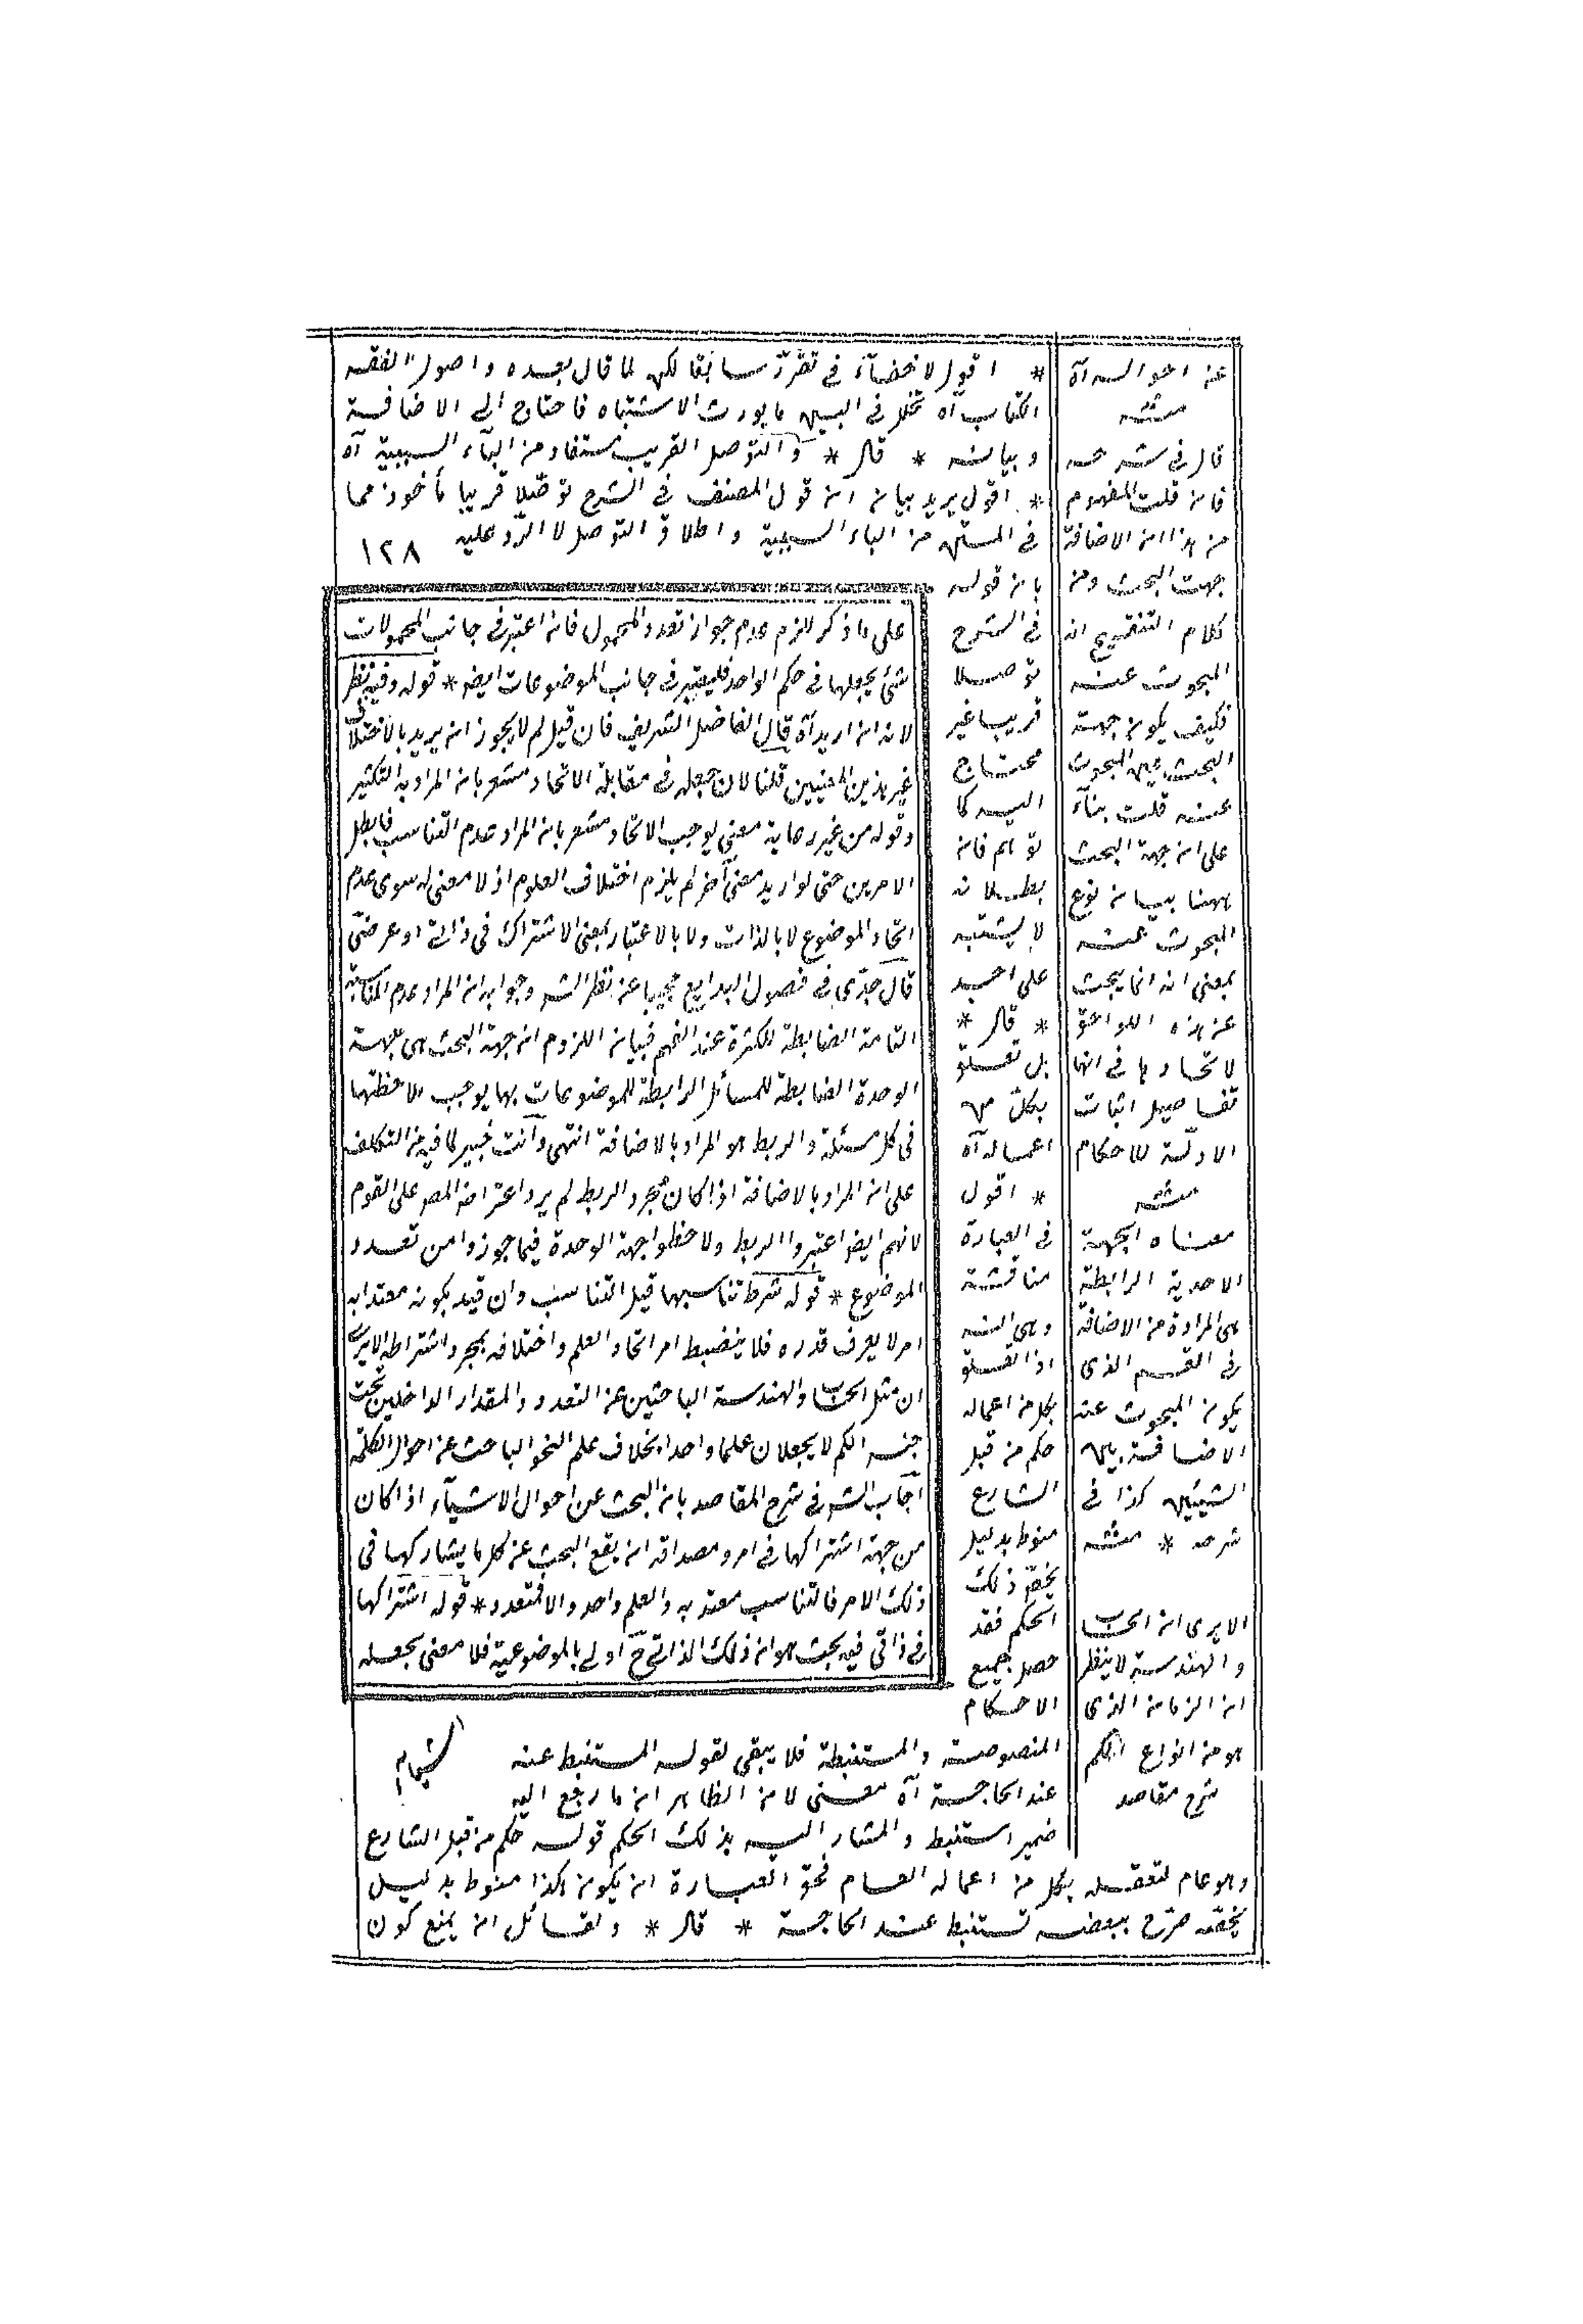 * اقول لا خفاء في تقرره سابقا لكن لما قال بعده واصول الفقه
الكتاب آه تخلل في البين ما يورث الاشتباه فاحتاج الى الاضافة
وبيانه * قال * والتوصل القريب مستفاد من الباء السببية آه
* اقول يريد بيان ان قول المصنف في الشرح توصلا قريبا مأخوذ مما
في المتن من الباء السببية واطلاق التوصل لا الرد عليه ١٢٨
بان قوله
في الشرح
توصلا
قريبا غير
محتاج
اليه كما
توهم فان
بطلانه
لا يشتبه
على احد
* قال *
بل تعلق
بكل من
اعماله آه
* اقول
في العبارة
مناقشة
وهي انه
اذا تعلق
بكل من اعماله
حكم من قبل
الشارع
منوط بدليل
يخصه ذلك
الحكم فقد
حصل جميع
الاحكام
المنصوصة والمستنبطة فلا يبقى لقوله المستنبط عنه
عند الحاجة آه معنى لان الظاهر ان ما رجع اليه
ضمير استنبط والمشار اليه بذلك الحكم قوله حكم من قبل الشارع
وهو عام لتعلقه بكل من اعماله العام فحق العبارة ان يكون هكذا منوط بدليل
يخصه صرح ببعضه تستنبط عند الحاجة * قال * ولقائل ان يمنع كون
على ما ذكر للزم عدم جواز تعدد المحمول فانه اعتبر في جانب المحمولات
شئ يجعلها في حكم الواحد فليعتبر في جانب الموضوعات ايضه * قوله وفيه نظر
لانه ان اريد آه قال الفاضل الشريف فان قيل لم لا يجوز ان يريد بالاختلاف
غير هذين المعنيين قلنا لان جعله في مقابلة الاتحاد مشعر بان المراد به التكثير
وقوله من غير رعاية معنى يوجب الاتحاد مشعر بان المراد عدم التناسب فابطل
الامرين حتى لو اريد معنى آخر لم يلزم اختلاف العلوم اذ لا معنى له سوى عدم
اتحاد الموضوع لا بالذات ولا بالاعتبار بمعنى الاشتراك في ذاتى او عرضى
قال جدى في فصول البدايع مجيبا عن نظر الشه وجوابه ان المراد عدم المناسبة
التامة الضابطة للكثرة عند الفهم فبيان اللزوم ان جهة البحث هى جهة
الوحدة الضابطة للمسائل الرابطة للموضوعات بها يوجب ملاحظتها
في كل مسئلة والربط هو المراد بالاضافة انتهى وانت خبير لما فيه من التكلف
على ان المراد بالاضافة اذا كان مجرد الربط لم يرد اعتراض المصه على القوم
لانهم ايضا اعتبروا الربط ولاحظوا جهة الوحدة فيما جوزوا من تعدد
الموضوع * قوله شرط تناسبها قيل التناسب وان قيد بكونه معتدا به
امر لا يعرف قدره فلا ينضبط امر اتحاد العلم واختلافه بمجرد اشتراطه الا يرى
ان مثل الحساب والهندسة الباحثين عن التعدد والمقدار الداخلين تحت
جنس الكم لا يجعلان علما واحدا بخلاف علم النحو الباحث عن احوال الكلمة
اجاب الشه في شرح المقاصد بان البحث عن احوال الاشياء اذا كان
من جهة اشتراكها في امر ومصداقه ان يقع البحث عن كل ما يشاركها في
ذلك الامر فالتناسب معتد به والعلم واحد والا فمتعدد * قوله اشتراكها
في ذاتى فيه بحث هو ان ذلك الذاتى ح اولى بالموضوعية فلا معنى بجعله
عن احواله آه
منه
قال في شرحه
فان قلت المفهوم
من هذا ان الاضافة
جهت البحث ومن
كلام التنقيح انه
المبحوث عنه
فكيف يكون جهة
البحث عين المبحوث
عنه قلت بناء
على ان جهة البحث
ههنا بيان نوع
المبحوث عنه
بمعنى انه انما يبحث
عن هذه اللواحق
لاتحادها في انها
تفاصيل اثبات
الادلة للاحكام
منه
معناه الجهة
الاحدية الرابطة
هى المرادة من الاضافة
في القسم الذى
يكون المبحوث عنه
الاضافة بين
الشيئين كذا في
شرحه * منه
الا يرى ان الحساب
والهندسة لا ينظر
ان الزمان الذى
هو من انواع الكم
شرح مقاصد